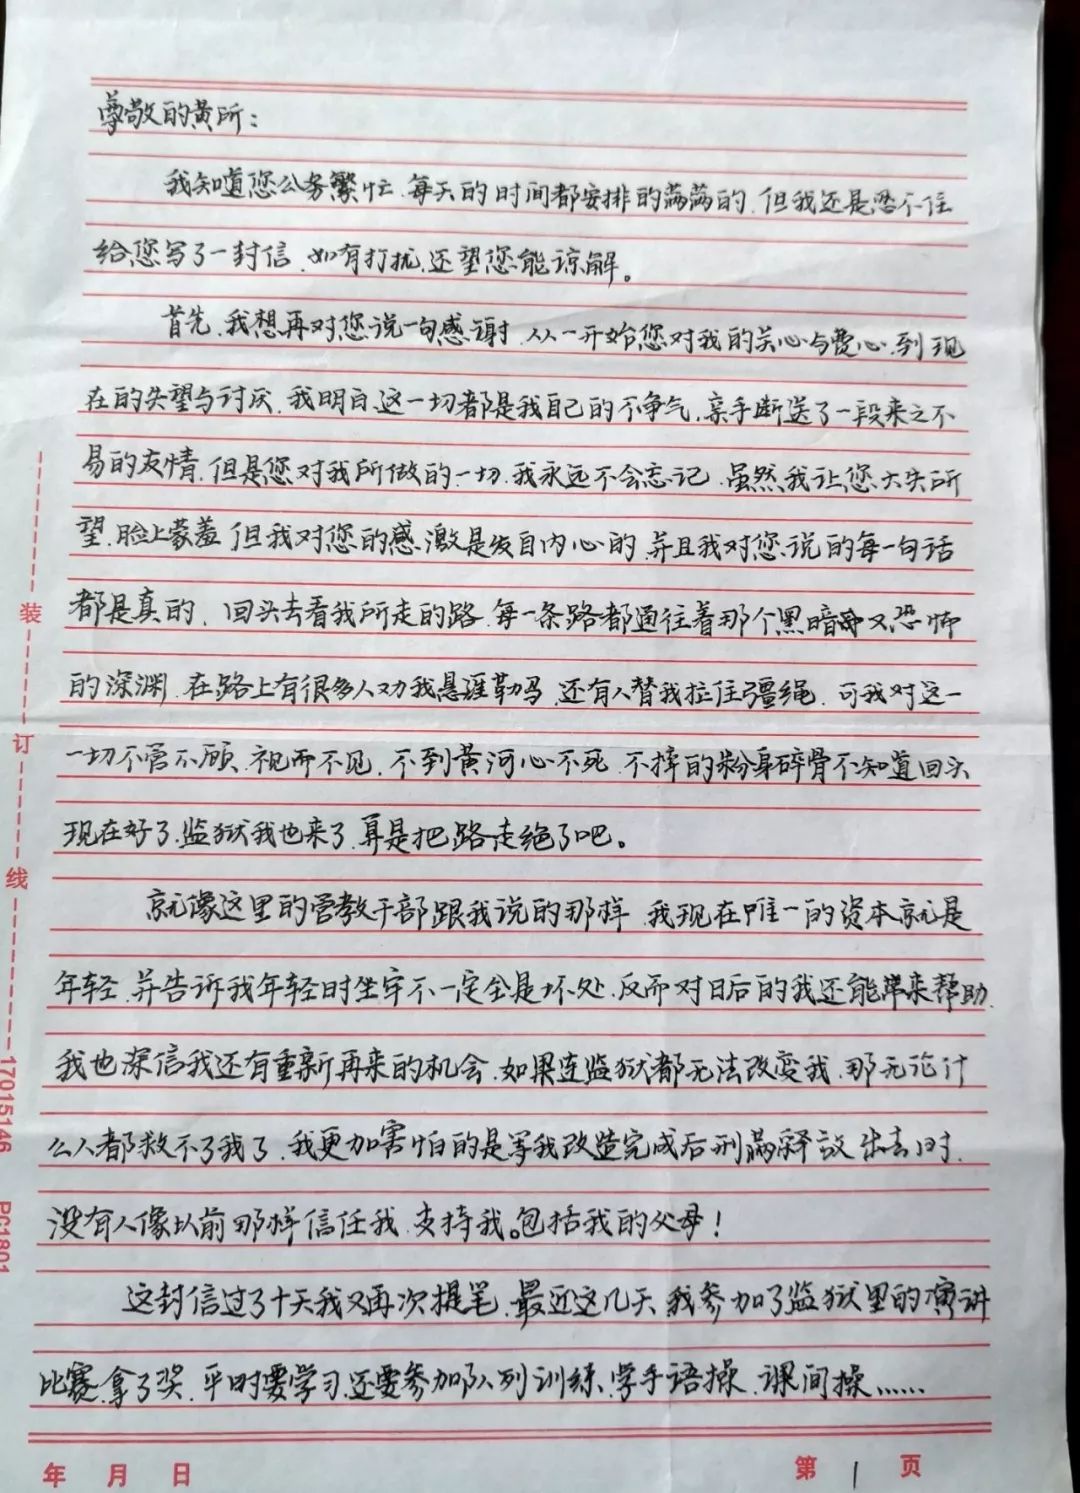 尊敬的黄所：
我知道您公务繁忙，每天的时间都安排的满满的，但我还是忍不住
给您写了一封信，如有打扰，还望您能谅解。
首先，我想再对您说一句感谢，从一开始您对我的关心与费心，到现
在的失望与讨厌，我明白，这一切都是我自己的不争气，亲手断送了一段来之不
易的友情，但是您对我所做的一切，我永远不会忘记，虽然我让您大失所
望，脸上蒙羞，但我对您的感激是发自内心的，并且我对您说的每一句话
都是真的，回头去看我所走的路，每一条路都通往着那个黑暗又恐怖
的深渊，在路上有很多人劝我悬涯勒马，还有人替我拉住疆绳，可我对这一
一切不管不顾，视而不见，不到黄河心不死，不摔的粉身碎骨不知道回头
现在好了，监狱我也来了，算是把路走绝了吧。
就像这里的管教干部跟我说的那样，我现在唯一的资本就是
年轻，并告诉我年轻时坐牢不一定全是坏处，反而对日后的我还能带来帮助，
我也深信我还有重新再来的机会，如果连监狱都无法改变我，那无论什
么人都救不了我了，我更加害怕的是等我改造完成后刑满释放出去时，
没有人像以前那样信任我，支持我。包括我的父母！
这封信过了十天我又再次提笔，最近这几天，我参加了监狱里的演讲
比赛，拿了奖，平时要学习，还要参加队列训练、学手语操、课间操……
装
订
线
17015146 PC1801
年 月 日
第 1 页